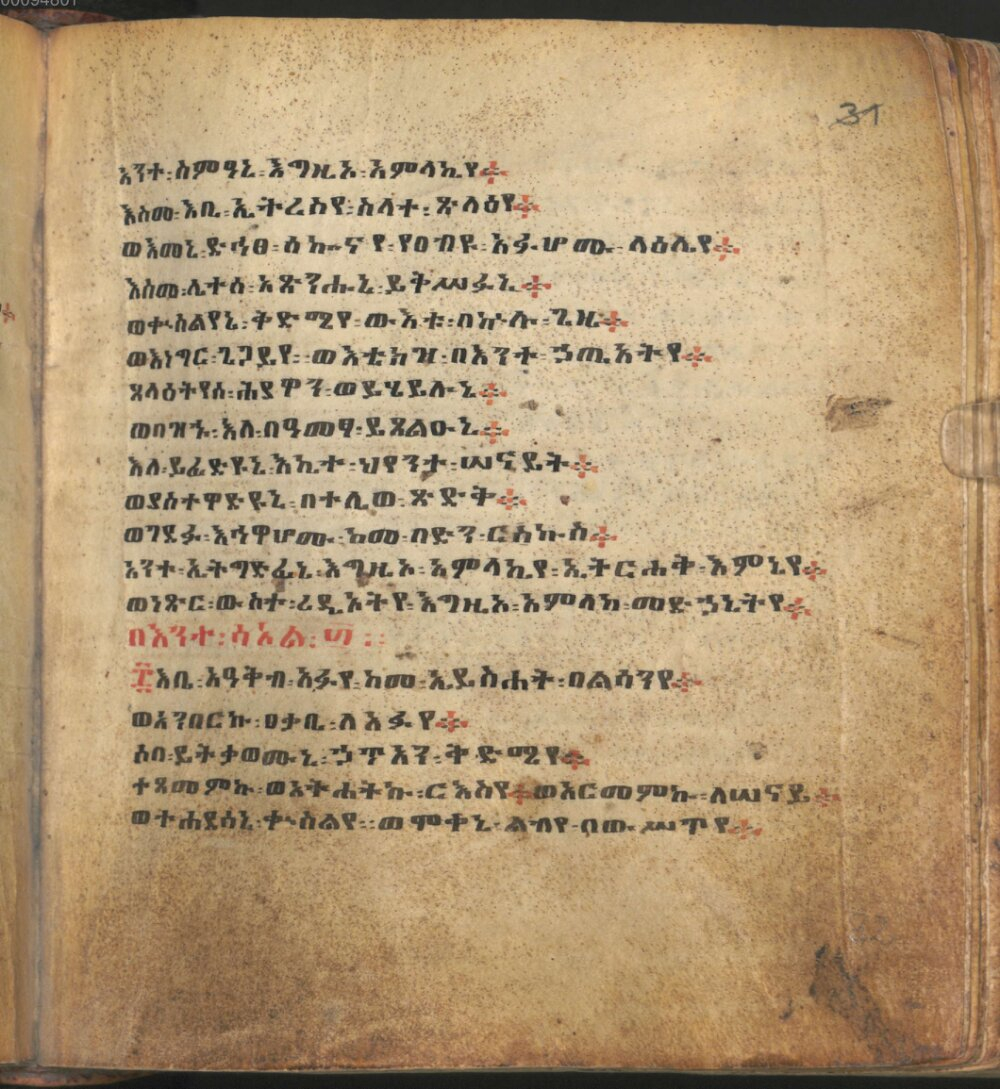 00094801
31
አንተ፡ስምዓኒ፡እግዚኦ፡አምላኪየ፨
እስመ፡እቤ፡ኢትረስየ፡ስላተ፡ጽላዕየ፨
ወእመኒ፡ድኅፀ፡ሰኰናየ፡የዐብዩ፡አፉሆሙ፡ላዕሌየ፨
እስመ፡ሊተሰ፡አጽንሑኒ፡ይትሠፉኒ፨
ወቍስልየኒ፡ቅድሜየ፡ውእቱ፡በኵሉ፡ጊዜ፨
ወእነግር፡ጌጋይየ፡ወእቴክዝ፡በእንተ፡ኃጢአትየ፨
ጸላዕትየሰ፡ሕያዋን፡ወይሄይሉኒ፨
ወበዝኁ፡እለ፡በዓመፃ፡ይጸልዑኒ፨
እለ፡ይፈድዩኒ፡እኪተ፡ህየንተ፡ሠናይት፨
ወያስተዋድዩኒ፡በተሊወ፡ጽድቅ፨
ወገደፉ፡እኅዋሆሙ፡ከመ፡በድን፡ርኩስ፨
አንተ፡ኢትግድፈኒ፡እግዚኦ፡አምላኪየ፡ኢትርሐቅ፡እምኒየ፨
ወነጽር፡ውስተ፡ረዲኦትየ፡እግዚአ፡አምላክ፡መድኃኒትየ፨
በእንተ፡
እቤ፡አዓቅብ፡አፉየ፡ከመ፡ኢይስሐት፡በልሳንየ፨
ወአንበርኩ፡ዐቃቤ፡ለአፉየ፨
ሶበ፡ይትቃወሙኒ፡ኃጥአን፡ቅድሜየ፨
ተጸመምኩ፡ወአትሐትኩ፡ርእስየ፨ወአርመምኩ፡ለሠናይ፨
ወተሐደሰኒ፡ቍስልየ፡ወሞቀኒ፡ልብየ፡በውሥጥየ፨